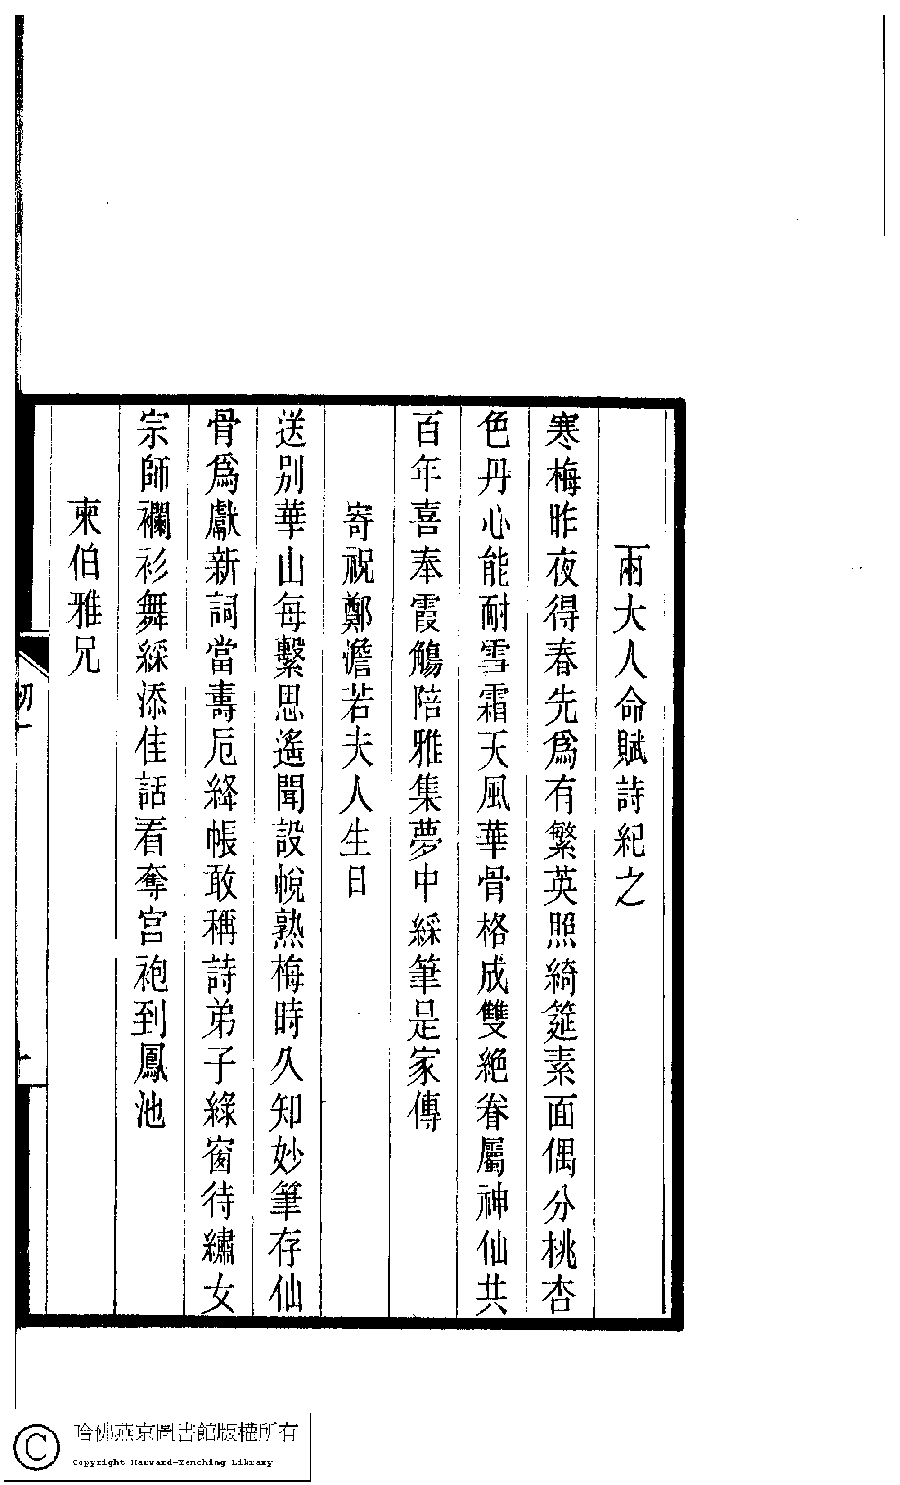 兩大人命賦詩紀之
寒梅昨夜得春先爲有繁英照綺筵素面偶分桃杏
色丹心能耐雪霜天風華骨格成雙絶眷屬神仙共
百年喜奉霞觴陪雅集夢中綵筆是家傳
寄祝鄭澹若夫人生日
送別華山每繫思遙聞設帨熟梅時久知妙筆存仙
骨爲獻新詞當壽巵絳帳敢稱詩弟子綠窗待繡女
宗師襴衫舞綵添佳話看奪宫袍到鳳池
柬伯雅兄
初一
十
哈佛燕京圖書館版權所有
Copyright Harvard-Yenching Library